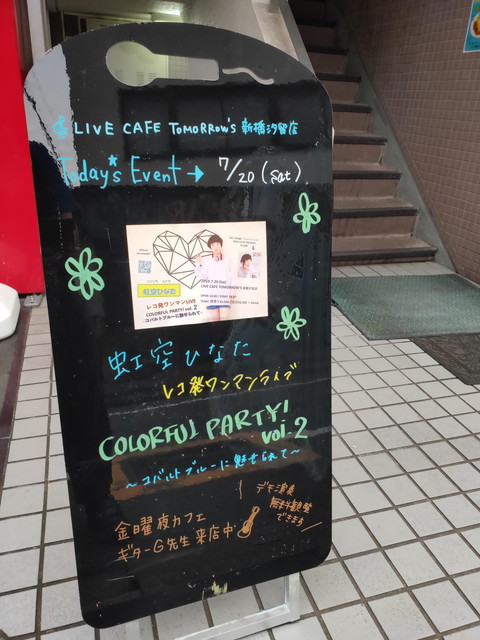 LIVE CAFE TOMORROW'S 新橋汐留店
Today's Event → 7/20 (Sat)
虹空ひなた
レコ発ワンマンLIVE
COLORFUL PARTY! vol. 2
-コバルトブルーに魅せられて-
LIVE CAFE TOMORROW'S
虹空ひなた
レコ発ワンマンライブ
COLORFUL PARTY!
vol.2
〜コバルトブルーに魅せられて〜
デモ演奏
無料観覧
できます
金曜夜カフェ
ギターG先生来店中